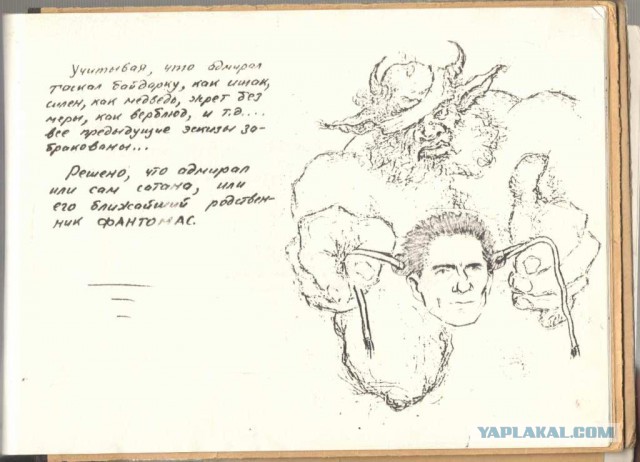 Учитывая, что адмирал
таскал байдарку, как ишак,
силен, как медведь, жрет без
меры, как верблюд, и т.д....
все предыдущие эскизы за-
бракованы...
Решено, что адмирал
или сам сатана, или
его ближайший родствен-
ник ФАНТОМАС.
YAPLAKAL.COM